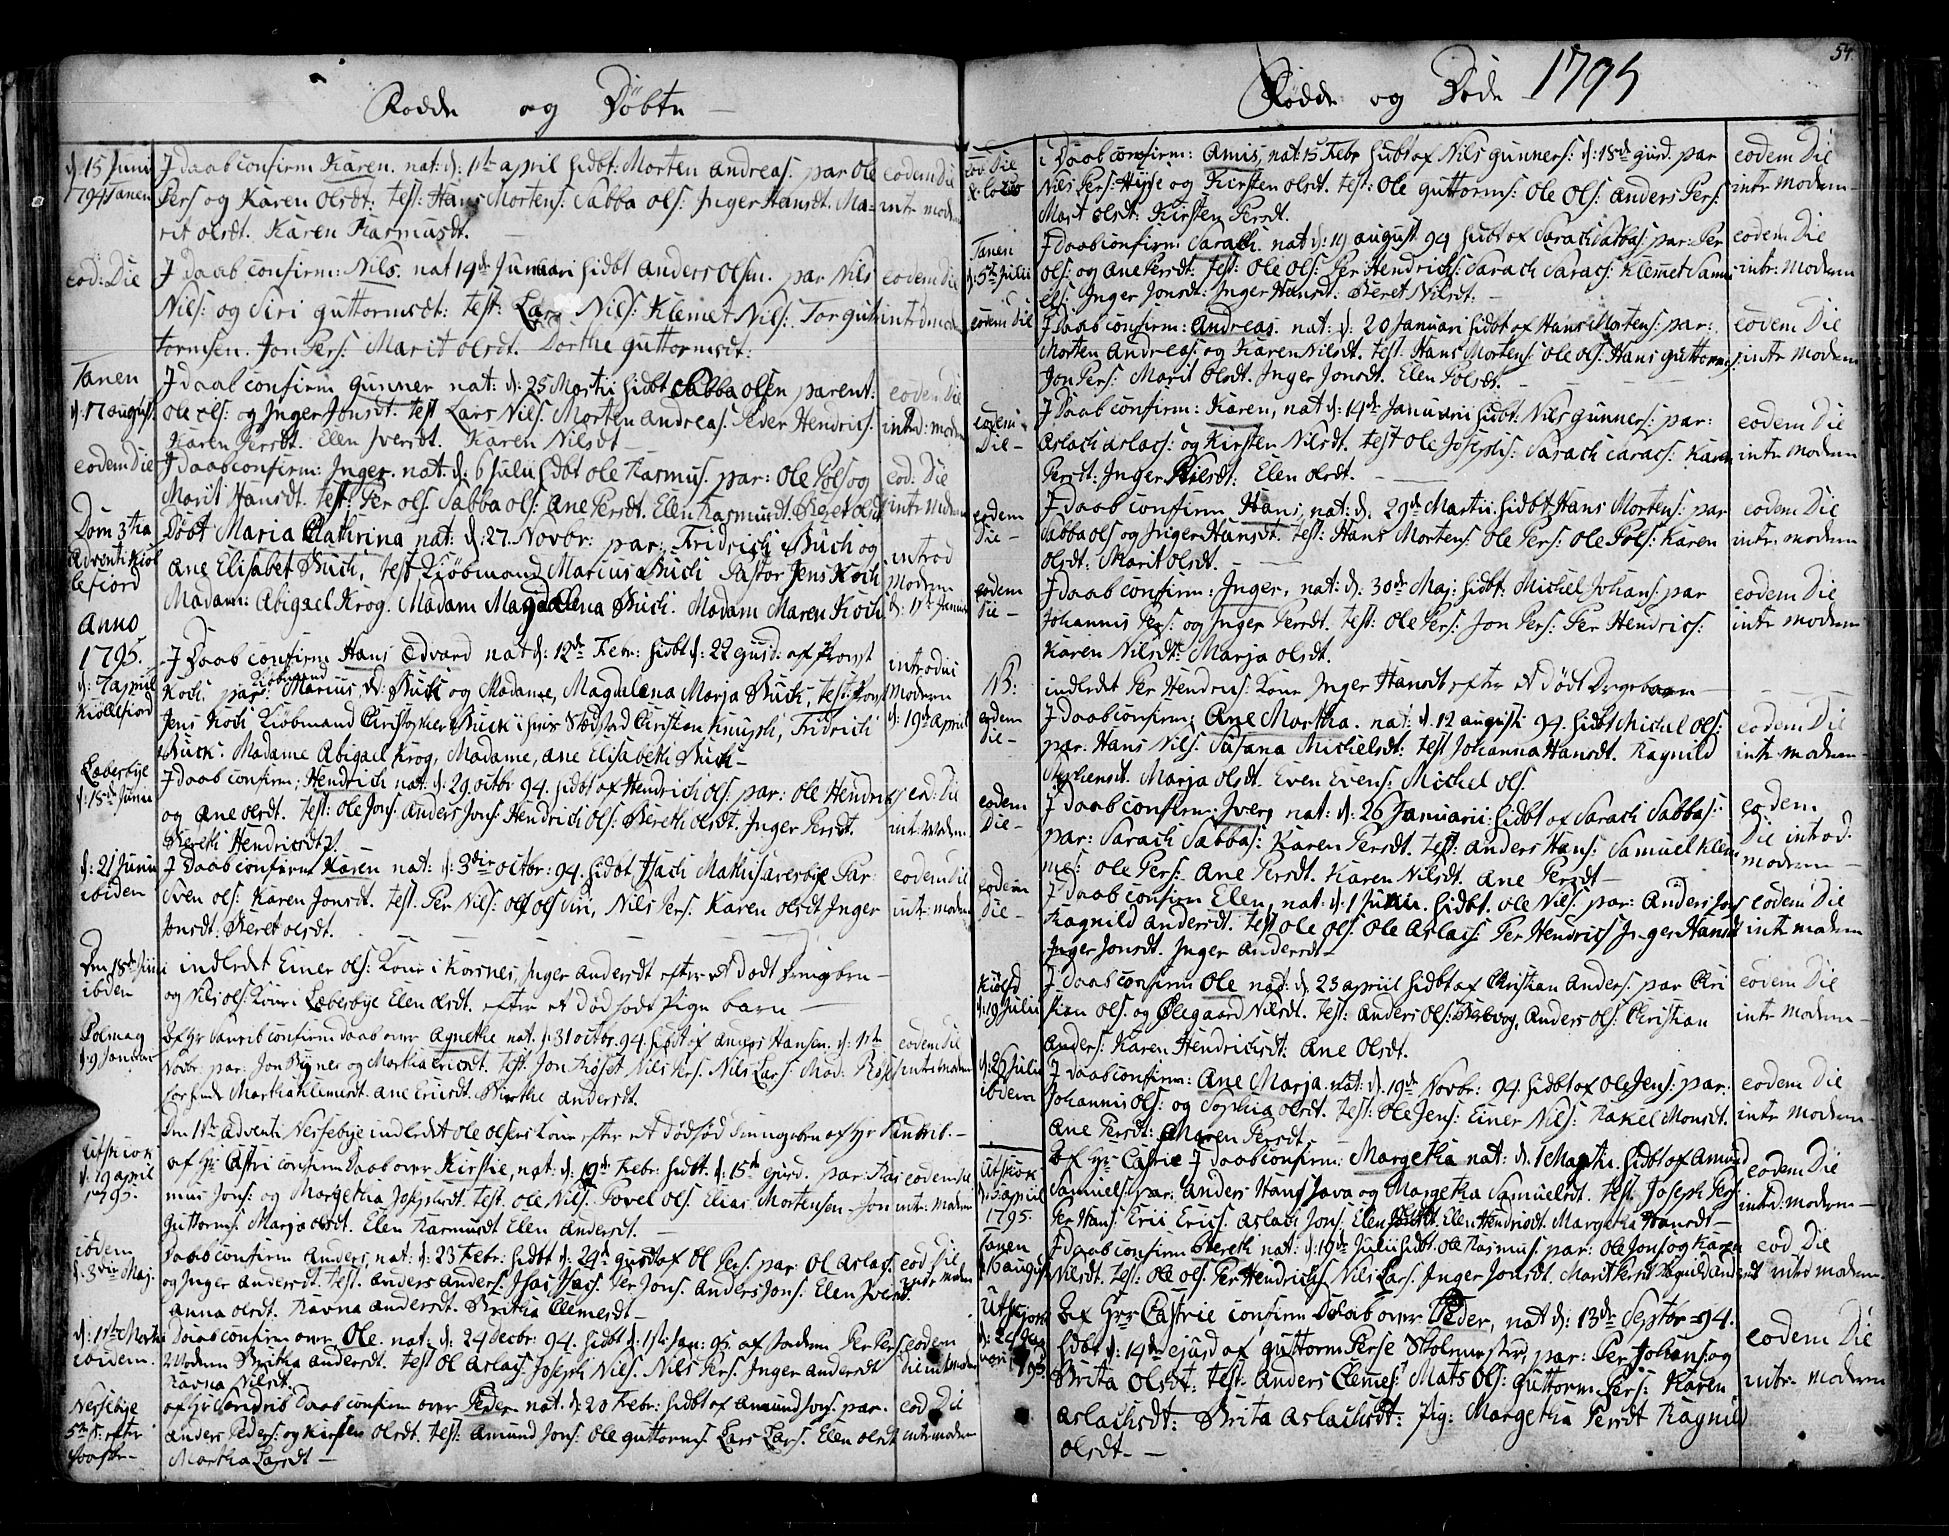 Fødde og Döbte —
d. 15 Junii
1794 Tanen
J Daab confirm Karen. nat: d: 11te april hidbt: Morten Andreas. par Ole
Pers og Karen Olsdt: test: Hans Mortens: Sabba Ols: Inger Hansdt. Ma-
rit Olsdt. Karen Rasmusdt.
eodem Die
intr modem
eod: Die
J Daab confirm: Nils. nat 14de Januari hidbt Anders Olsen. par Nils
Nils: og Siri Guttormsdt: test: Lars Nils: Klemet Nils: Tor Gut
tormsen. Jon Pers: Marit Olsdt. Dorthe Guttormsdt:
eodem Die
Tanen
d. 17 august.
J daab confirm Gunner nat: d: 25 Martii hidbt Sabba Olsen parent:
Ole Ols: og Inger Jonsdt. test Lars Nils. Morten Andreas. Peder Hendrics:
Karen Persdt. Elen Iversdt. Karen Nilsdt —
eodem Die
intrd: modem
eodem Die
J Daab confirm: Inger. nat: d: 6 Julii hidbt Ole Rasmus. par: Ole Pols og
Marit Hansdt. test: Per Ols. Sabba Ols: Ane Persdt. Elen Rasmusdt. Beret Olsdt
eod: Die
intr modem
Dom 3tia
Adventi Kiöl
lefiord
Döbt Maria Cathrina nat: d: 27. Novbr: par: Fridrich Buch og
Ane Elisabet Buch, test Kiöbmand Marcus Buch Pastor Jens Koch
Madam: Abigael Krog. Madam Magdalena Buch. Madam Maren Koch
introd
Modem
Anno
1795.
d: 7 april
Kiöllefiord
J Daab confirm Hans Edvard nat d: 12de Febr: hidbt d: 22 ejusd: af Provst
Koch. par: Kiöbmand Marcus Buch og Madame, Magdalena Marja Buch, test: Provst
Jens Koch Kiöbmand Christopher Buck Christian Knupsli, Fridrich
Buck: Madame Abigael Krog, Madame, Ane Elisabeth Buch —
introduc
Modem
d: 19 april
Leberbye
d: 18de Junii
J daab confirm: Hendrich nat: d: 29 octbr 94. hidbt af Hendrich Ols: par: Ole Hendrics
og Ane Olsdt. test: Ole Jons: Anders Jons: Hendrich Ols: Bereth Olsdt. Inger Persdt.
Bereth Hendricsdt.
eod: Die
intr: modem
d: 21 Junii
ibiden
J Daab confirm Karen nat: d: 3die octbr: 94. hidbt Par:
Sven Ols: Karen Jonsdt. test: Per Nils: Nils Pers. Karen Olsdt Inger
Jonsdt: Beret Olsdt.
eodem Die
intr: modem
Den 18de Junii
ibiden
indledet Einer Ols: Kone i Korsnes, Inger Andersdt efter et Dödt Drengebrn —
og Nils Ols. Kone Leberbye Elen Olsdt. efter et Död födt Pige barn —
Polmag
d: 9 Januar
af Hr confirm daab over Agnethe nat: d: 31 octbr. 94. hidbt af Hansen. d: 1ste
Novbr: par: Jon og Martha Ericsdt. test. Jon Nils Pers. Nils Lars. Mad:
Martha Klemetsdt. Ane Ericsdt. Birthe Andersdt.
eodem Die
intr: modem
Den 1ste Adventi Nessebye indledet Ole Olsens Kone efter et Dödföd Drengebrn af Hr
Utskiok
d: 19 april
1795.
af Hr: Castri confirm Daab over Kirstie, nat: d: 19de Febr: hidbt. d: 15de ejusd. par: Ras
mus Jons: og Margetha Josephsdt. test. Ole Nils: Povel Ols: Elias Mortensen Jon
Guttorms: Marja Olsdt. Elen Rasmusdt Elen Andersdt.
eodem Die
intr: modem
ibidem
d. 3die Maj.
Daab confirm Anders, nat: d: 23 Febr: hidbt d: 24de ejusd af Ol Pers: par: Ol Aslacs:
og Inger Andersdt. test. Anders Anders: Isac Isacs. Per Jons. Anders Jons: Elen Iversdt.
Anna Olsdt. Ravna Andersdt. Britha Clemetsdt —
eod Die
intr modem
ibidem.
Daab confirm over Ole. nat: d: 24 Decbr: 94. hidbt d: 1ste Jan: 95. af Per Pers
Modem Britha Andersdt. test Ol Aslacs: Joseph Nils. Nils Pers. Inger Andersdt
Ravna Nilsdt.
eodem
Die int: Modem
Nessebye
5te S: efter
af Hr Daab confirm over Peder nat: d: 20 Febr: hidbt af Amund Jons. par.
Anders Peders: og Kirsten Olsdt. test: Amund Jons: Ole Guttorms: Lars Lars. Elen Olsdt
Martha Larsdt —
eod Die
intr modem
54.
Födde og Döde 1795
i Daab confirm: Amis, nat: 15 Febr hidbt af Nils Gunners: d: 18de ejusd. par
Nils Pers: og Kirsten Olsdt. test: Ole Guttorms: Ole Ols: Anders Pers:
Marit Olsdt: Kirsten Persdt.
eodem Die
intr: modem —
Tanen
d: 5te Julii
J daab confirm: Sarach. nat d: 19 august 94 hidbt af Sarach Sabbas: par: Per
Ols: og Ane Persdt: test: Ole Ols: Per Hendrics: Sarach Saracs: Klemet Samu
els: Inger Jonsdt: Inger Hansdt: Beret Nilsdt: —
eodem Die
intr: modem
eodem Die
J daab confirm: Andreas. nat: d: 20 Januari hidbt af Hans Mortens: par:
Morten Andreas: og Karen Nilsdt. test. Hans Mortens: Ole Ols: Hans Guttorms:
Jon Pers: Marit Olsdt. Inger Jonsdt: Elen Polsdt.
eodem Die
intr modem
eodem
Die —
J Daab confirm: Karen, nat: d: 14de Januarii hidbt: Nils Gunners: par:
Aslach Aslacs: og Kirsten Nilsdt. test Ole Josephs: Sarach Saracs: Karen
Persdt: Inger Nilsdt: Elen Olsdt.
eodem Die
intr modem
eodem
Die —
J Daab confirm Hans, nat: d: 29de Martii. hidbt Hans Mortens: par
Sabba Ols og Inger Hansdt. test: Hans Mortens: Ole Pers: Ole Pols: Karen
Olsdt: Marit Olsdt.
eodem Die
intr: modem
eodem
Die —
J daab confirm: Inger, nat: d: 30de Maj: hidbt: Michel Johans: par
Johannis Pers: og Inger Persdt. test: Ole Pers: Jon Pers: Per Hendrics:
Karen Nilsdt: Marja Olsdt.
eodem Die
intr modem
NB:
indledet Per Hendrics: Kone Inger Hansdt efter et dödt Drengebarn —
eodem
Die —
J Daab confirm: Ane Martha. nat: d: 12 augusti 94. hidbt Michel Ols:
par: Hans Nils: Susana Michelsdt: test Johanna Hansdt. Ragnild
Stephensdt. Marja Olsdt. Even Evens: Michel Ols.
eodem Die
intr modem
eodem
Die —
J Daab confirm: Iver, nat: d: 26 Januarii: hidbt af Sarach Sabbas:
par: Sarach Sabbas: Karen Persdt. test: Anders Hans: Samuel Klem
mes: Ole Pers: Ane Persdt. Karen Nilsdt. Ane Persdt —
eodem
Die introd.
modem —
eodem
Die —
J Daab confirm Elen, nat: d: 1 Junii. hidbt. Ole Nils: par: Anders Jons
Ragnild Andersdt. test Ole Ols: Ole Aslacs: Per Hendrics Inger Hansdt
Inger Jonsdt. Inger Andersdt —
eodem Die
intr modem
Kiölfd
d: 19 Julii
J daab confirm: Ole nat: d. 23 april hidbt af Christian Anders: par Chri
stian Ols. og Ölegaard Nilsdt. test: Anders Ols: Anders Ols: Christian
Anders: Karen Hendrichsdt: Ane Olsdt.
eodem Die
intr modem —
d: 26 Julii
ibidem
J daab confirm: Ane Marja. nat: d: 19de Novbr: 94 hidbt af Ole Jens: par:
Johannis Ols: og Sophia Olsdt. test: Ole Jens: Einer Nils: Rakel Monsdt.
Ane Persdt: Maren Persdt.
eodem Die
intr modem
Utskiok
april
1795.
af Hr: Castrie J daab confirm: Margetha nat: d. 1 Martii hidbt af Amund
Samuels: par: Anders Hans Java og Margetha Samuelsdt. test Joseph Pers
Per Hans: Eric Erics: Aslach Jons: Elen Elen Hendricsdt. Margetha Hansdt —
eodem Die
introd. modem —
Tanen
d: 16 august
J daab confirm Bereth nat: d: 19de Julii hidbt: Ole Rasmus: par: Ole Jons og Karen
Nilsdt. test: Ole Ols: Per Hendrics: Nils Lars: Inger Jonsdt: Marit Persdt Ragnild Andersdt
eod Die
intrd modem
Utskiok
af Hr Castrie confirm Daab over Peder, nat d: 13de Septbr 94.
hidbt d: 14de ejusd af Guttorm Perse Skolmester, par: Per Johans: og
Brita Olsdt: test: Anders Clemes: Mats Ols: Guttorm Pers: Karen
Aslachsdt: Brita Aslachsdt: Pig: Margetha Persdt Ragnild
Olsdt —
eodem Die
intr: modem